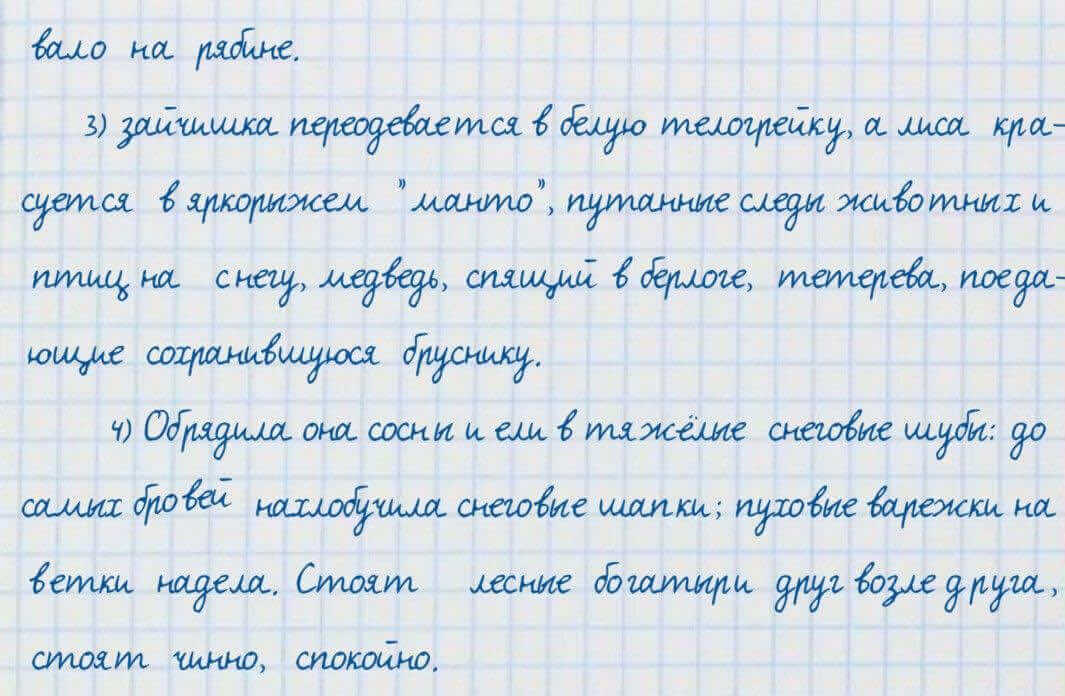 вало на рябине.
3) зайчишка переодевается в белую телогрейку, а лиса кра-
суется в яркорыжем "манто", путанные следы животных и
птиц на снегу, медведь, спящий в берлоге, тетерева, поеда-
ющие сохранившуюся бруснику.
4) Обрядила она сосны и ели в тяжёлые снеговые шубы: до
самых бровей нахлобучила снеговые шапки; пуховые варежки на
ветки надела. Стоят лесные богатыри друг возле друга,
стоят чинно, спокойно.